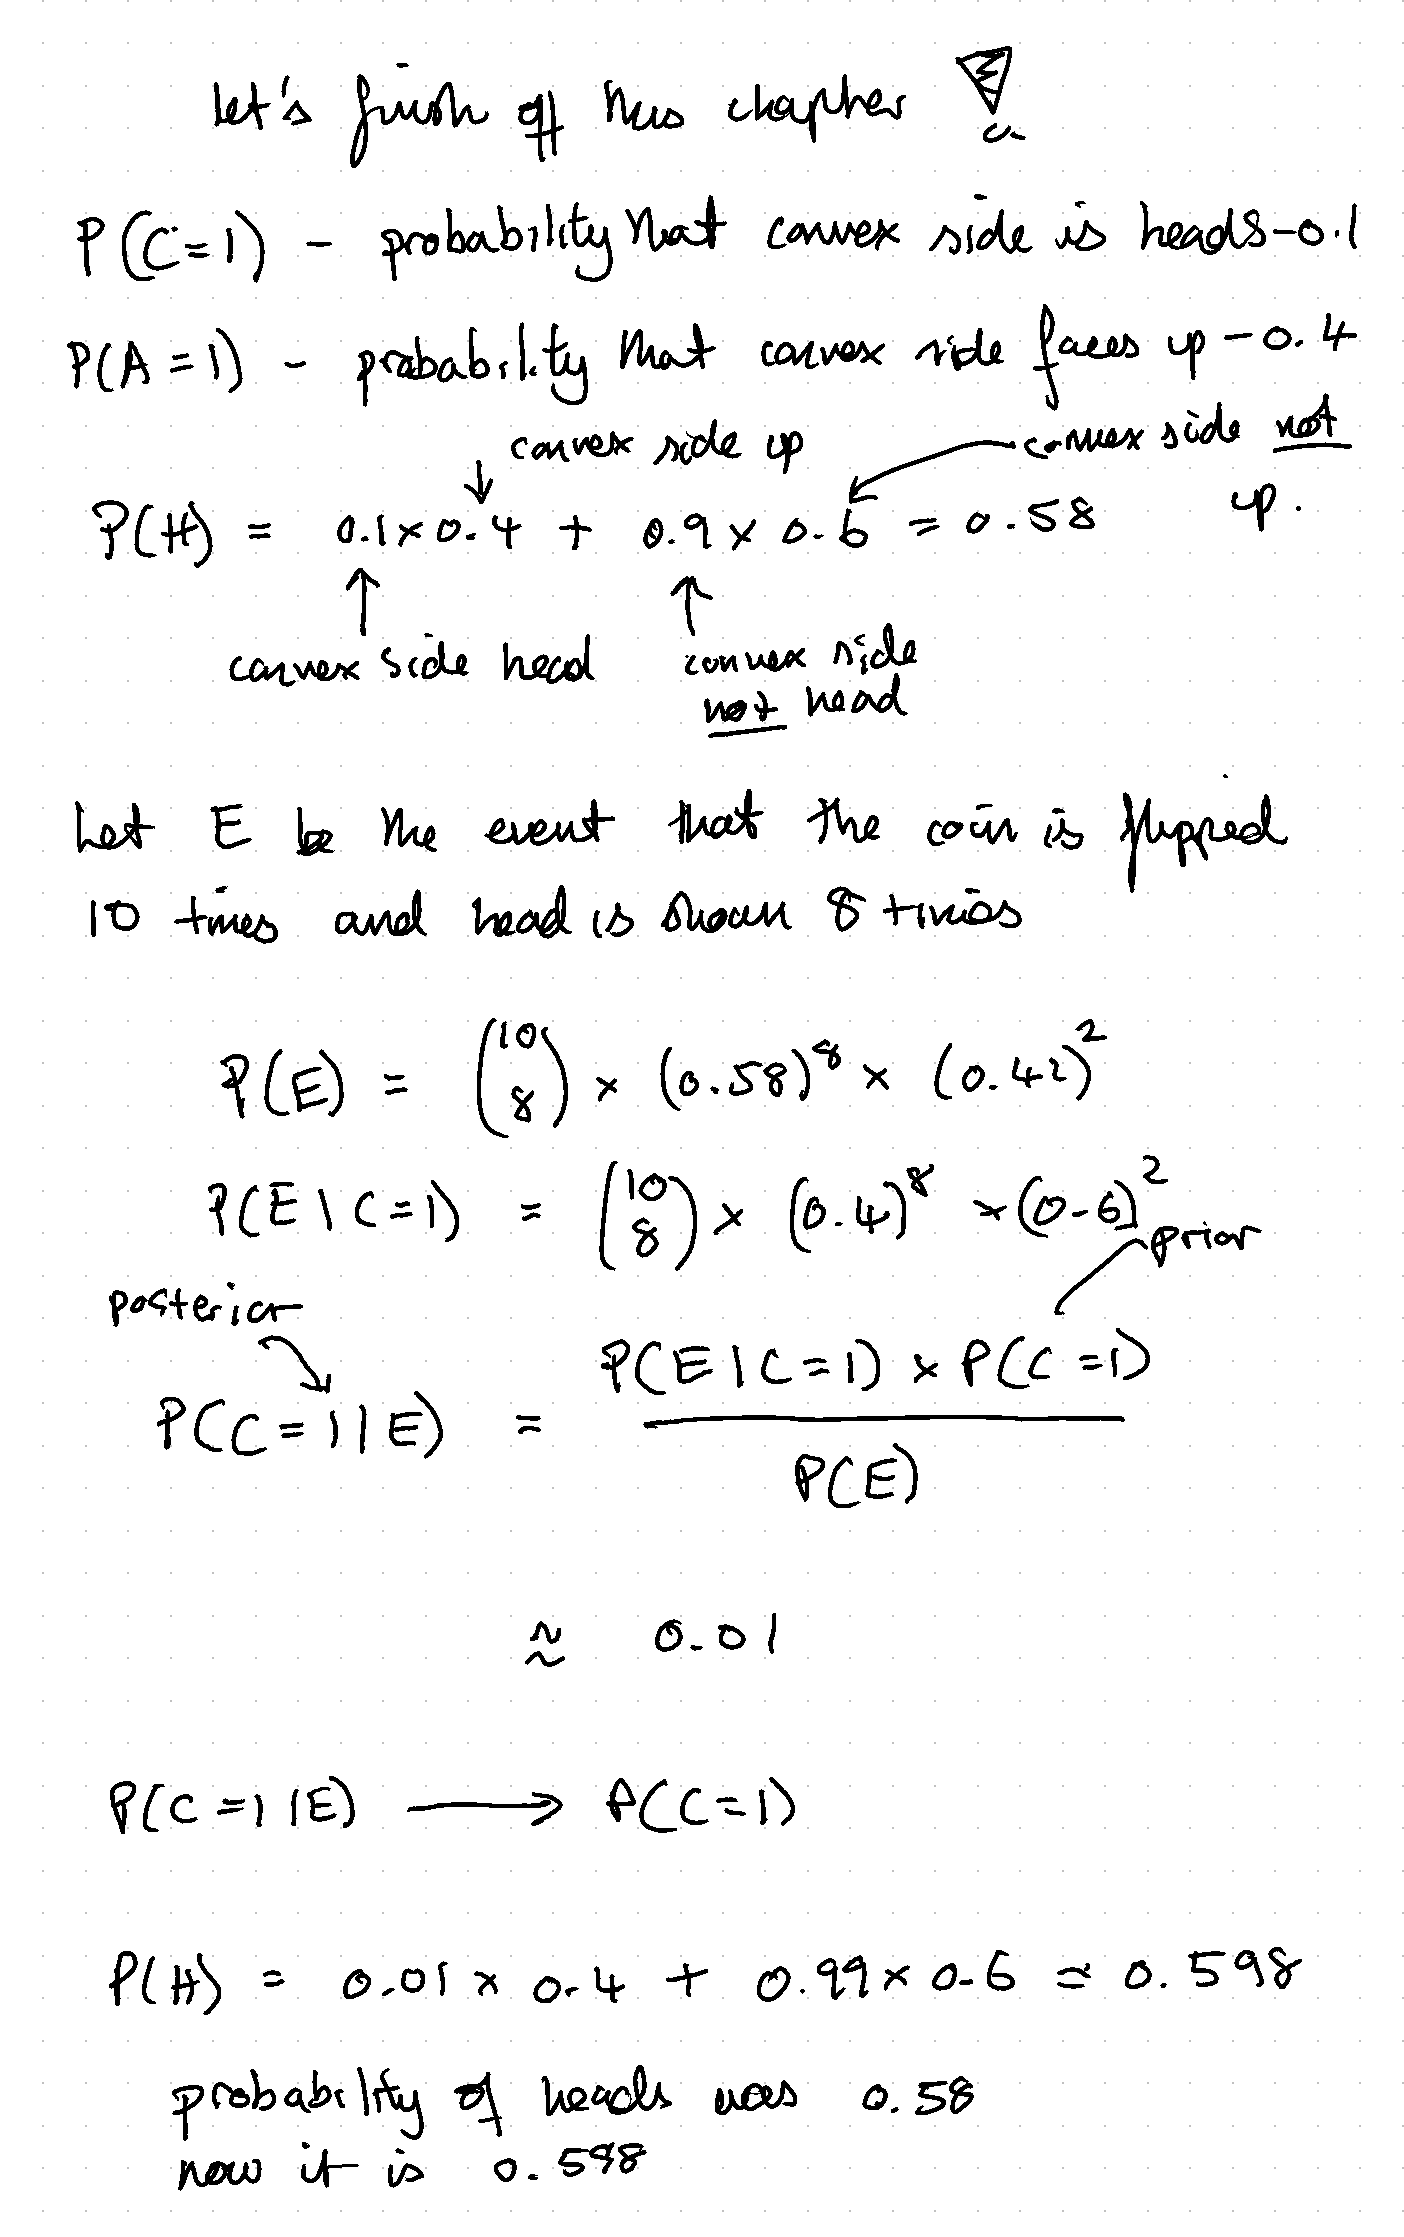 let's finish off this chapter
P(C=1) - probability that convex side is heads - 0.1
P(A=1) - probability that convex side faces up - 0.4
convex side up
convex side not up.
P(H) = 0.1 × 0.4 + 0.9 × 0.6 = 0.58
convex side head
convex side
not head
Let E be the event that the coin is flipped
10 times and head is shown 8 times
P(E) = (10 8) × (0.58)^8 × (0.42)^2
P(E|C=1) = (10 8) × (0.4)^8 × (0.6)^2
prior
posterior
P(C=1|E) = P(E|C=1) × P(C=1) / P(E)
≈ 0.01
P(C=1|E) → P(C=1)
P(H) = 0.01 × 0.4 + 0.99 × 0.6 = 0.598
probability of heads was 0.58
now it is 0.598